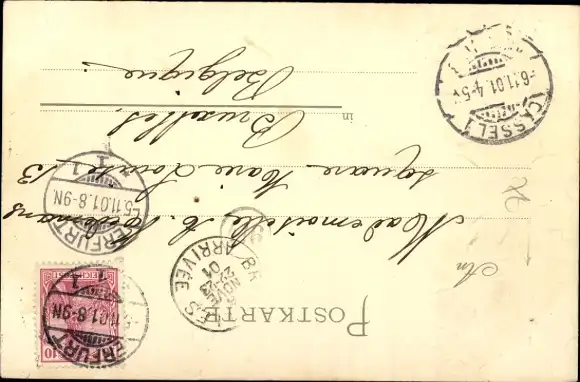 POSTKARTE
An
Mademoiselle C.
square Marie Louise 13
in Bruxelles
Belgique
ERFURT
5.11.01.8-9N
1
ERFURT
11.01.8-9N
1
REICHSPOST
10
CASSEL 1
6.11.01.4-5
ARRIVÉE
NOVE
22-23
01